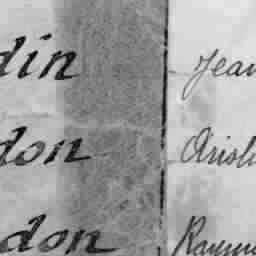 din Jean
don Arist
don Raym